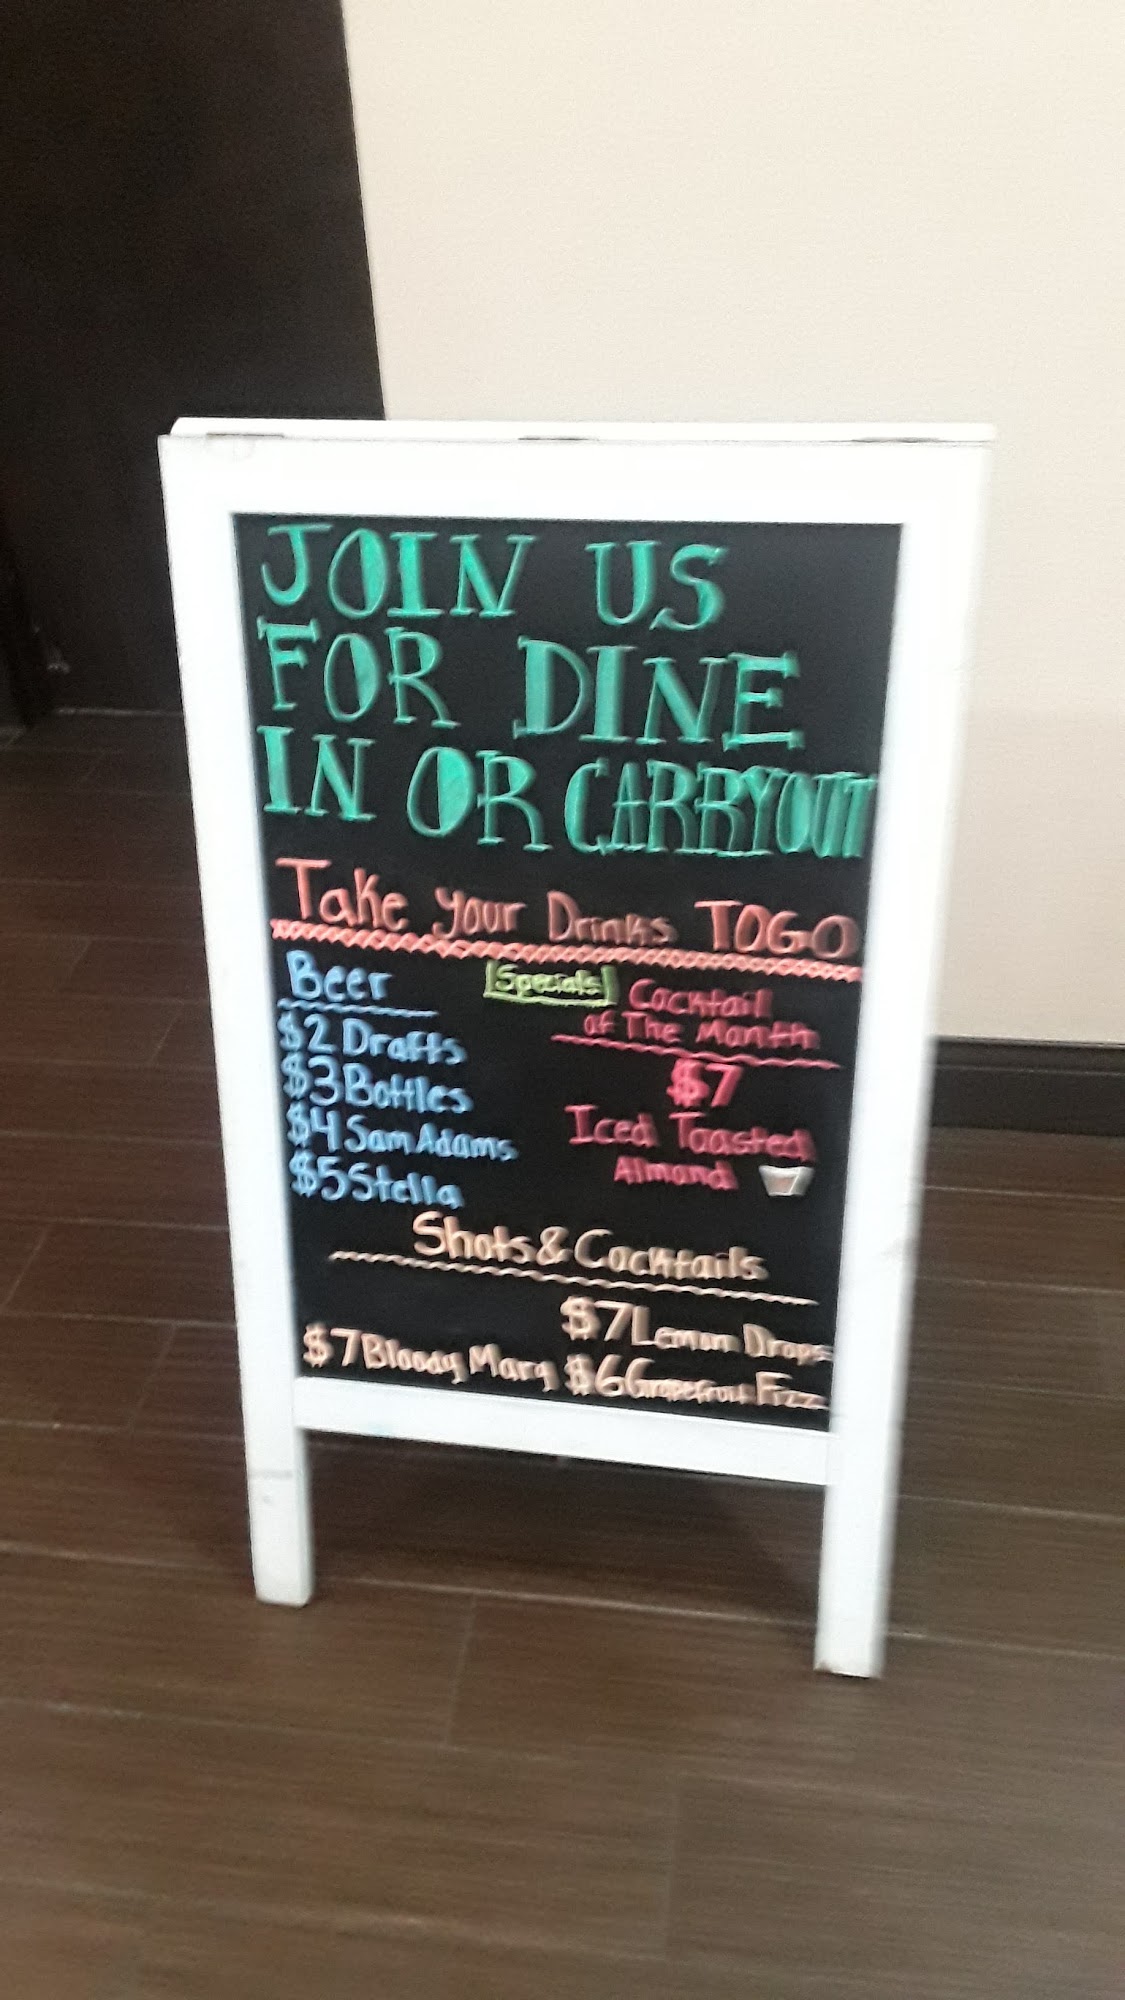 JOIN US
FOR DINE
IN OR CARRYOUT
Take your Drinks TOGO
Specials
Beer
$2 Drafts
$3 Bottles
$4 Sam Adams
$5 Stella
Cocktail
of The Month
$7
Iced Toasted
Almond
Shots & Cocktails
$7 Lemon Drops
$7 Bloody Mary $6 Grapefruit Fizz